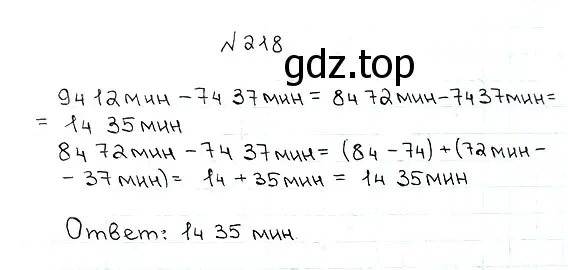 N 218
gdz.top
9ч 12мин – 7ч 37мин = 8ч 72мин – 7ч 37мин =
= 1ч 35мин
8ч 72мин – 7ч 37мин = (8ч – 7ч) + (72мин –
– 37мин) = 1ч + 35мин = 1ч 35мин
Ответ: 1ч 35 мин.